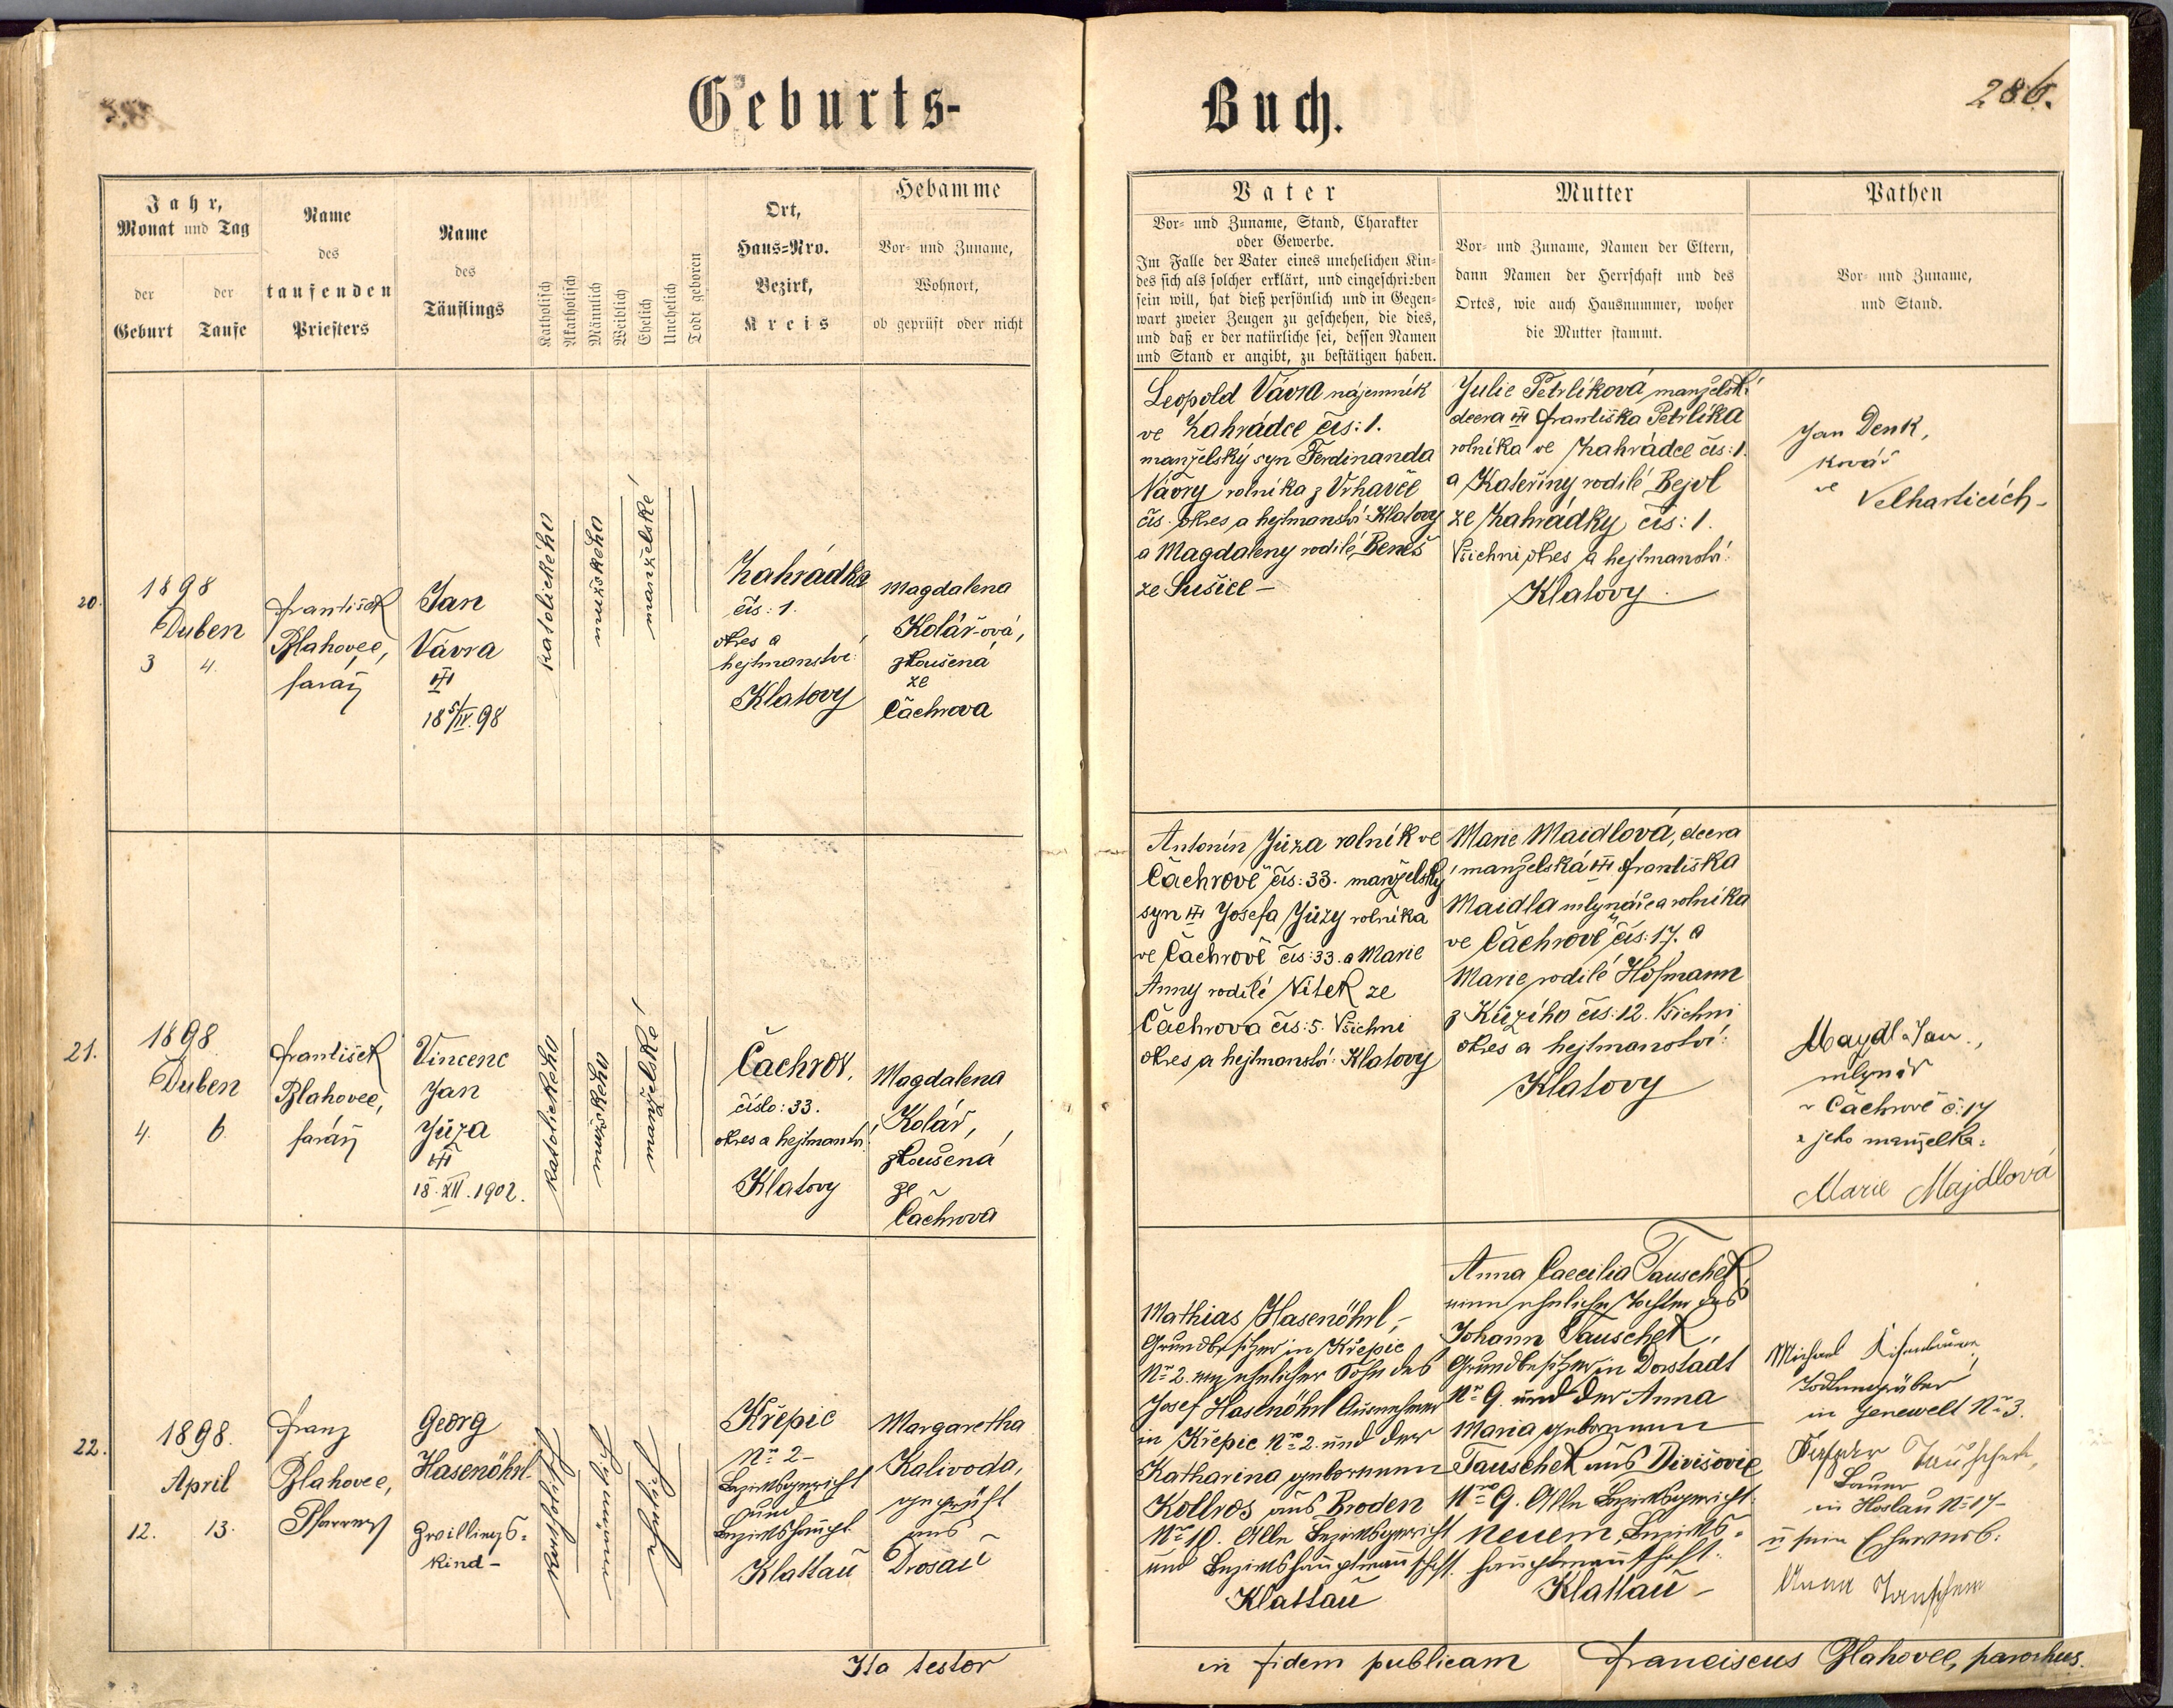 Geburts-
Buch.
286.
Jahr,
Monat und Tag
der
Geburt
der
Taufe
Name
des
taufenden
Priesters
Name
des
Täuflings
Katholisch
Akatholisch
Männlich
Weiblich
Ehelich
Unehelich
Todt geboren
Ort,
Haus=Nro.
Bezirk,
Kreis
Hebamme
Vor- und Zuname,
Wohnort,
ob geprüft oder nicht
Vater
Vor- und Zuname, Stand, Charakter
oder Gewerbe.
Im Falle der Vater eines unehelichen Kin-
des sich als solcher erklärt, und eingeschrieben
sein will, hat dieß persönlich und in Gegen-
wart zweier Zeugen zu geschehen, die dies,
und daß er der natürliche sei, dessen Namen
und Stand er angibt, zu bestätigen haben.
Mutter
Vor- und Zuname, Namen der Eltern,
dann Namen der Herrschaft und des
Ortes, wie auch Hausnummer, woher
die Mutter stammt.
Pathen
Vor- und Zuname,
und Stand.
20.
1898
Duben
3 4.
František
Blahovec,
farář
Jan
Vávra
18 5/IV. 98
katolického
mužského
manželské
Zahrádka
čís: 1.
okres a
hejtmanství:
Klatovy
Magdalena
Kolář-ová,
zkoušená
ze
Čachrova
Leopold Vávra nájemník
ve Zahrádce čís: 1.
manželský syn Ferdinanda
Vávry rolníka z Vrhavče
čís. okres a hejtmanství: Klatovy
a Magdaleny rodilé Beneš
ze Sušice –
Julie Petrlíková manželská
dcera Františka Petrlíka
rolníka ve Zahrádce čís: 1.
a Kateřiny rodilé Bejvl
ze Zahrádky čís: 1.
Všichni okres a hejtmanství:
Klatovy.
Jan Denk,
kovář
ve
Velharticích –
21.
1898
Duben
4. 6.
František
Blahovec,
farář
Vincenc
Jan
Jůza
18. XII. 1902.
katolického
mužského
manželské
Čachrov,
číslo: 33.
okres a hejtmanství:
Klatovy
Magdalena
Kolář,
zkoušená
ze
Čachrova
Antonín Jůza rolník ve
Čachrově čís: 33. manželský
syn Josefa Jůzy rolníka
ve Čachrově čís: 33. a Marie
Anny rodilé Vítek ze
Čachrova čís: 5. Všichni
okres a hejtmanství: Klatovy
Marie Maidlová, dcera
manželská Františka
Maidla mlynáře a rolníka
ve Čachrově čís: 17. a
Marie rodilé Hofmann
z Kůzího čís: 12. Všichni
okres a hejtmanství:
Klatovy
Maydl Jan.,
mlynář
v Čachrově č: 17
a jeho manželka:
Marie Majdlová
22.
1898.
April
12. 13.
Franz
Blahovec,
Pfarrer
Georg
Hasenöhrl
Zwillings-
kind –
katholisch
Křepic
Nro 2 –
Bezirksgericht
und
Bezirkshaupt.
Klattau
Margaretha
Kalivoda,
geprüft
aus
Drosau
Mathias Hasenöhrl,
Grundbesitzer in Křepic
Nro 2. ein ehelicher Sohn des
Josef Hasenöhrl Ausnehmer
in Křepic Nro 2. und der
Katharina gebornenen
Kollros aus Broden
Nro 10. Alle Bezirksgericht
und Bezirkshauptmannschaft.
Klattau
Anna Caecilia Tauschek,
eine eheliche Tochter des
Johann Tauschek,
Grundbesitzer in Dorstadt
Nro 9. und der Anna
Maria gebornenen
Tauschek aus Divišovic
Nro 9. Alle Bezirksgericht:
Neuern, Bezirks-
hauptmannschaft:
Klattau –
Michael
in Jenewelt Nro 3.
Tauschek,
Bauer
in Hoslau No 17 –
u sein Eheweib:
Anna Tauschek
Ita testor
in fidem publicam Franciscus Blahovec, parochus.